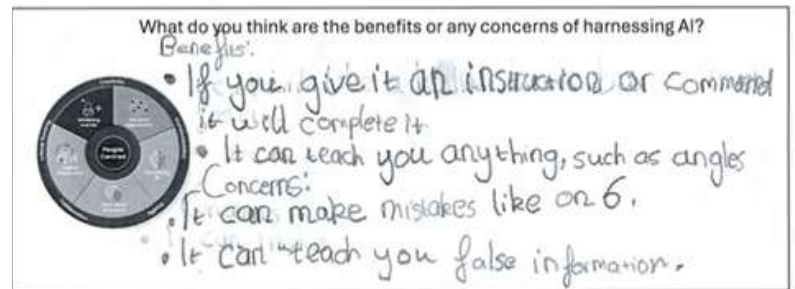 What do you think are the benefits or any concerns of harnessing AI?
Benefits:
• If you give it an instruction or command
it will complete it
• It can teach you anything, such as angles
Concerns:
• It can make mistakes like on 6.
• It can teach you false information.
People
Centred